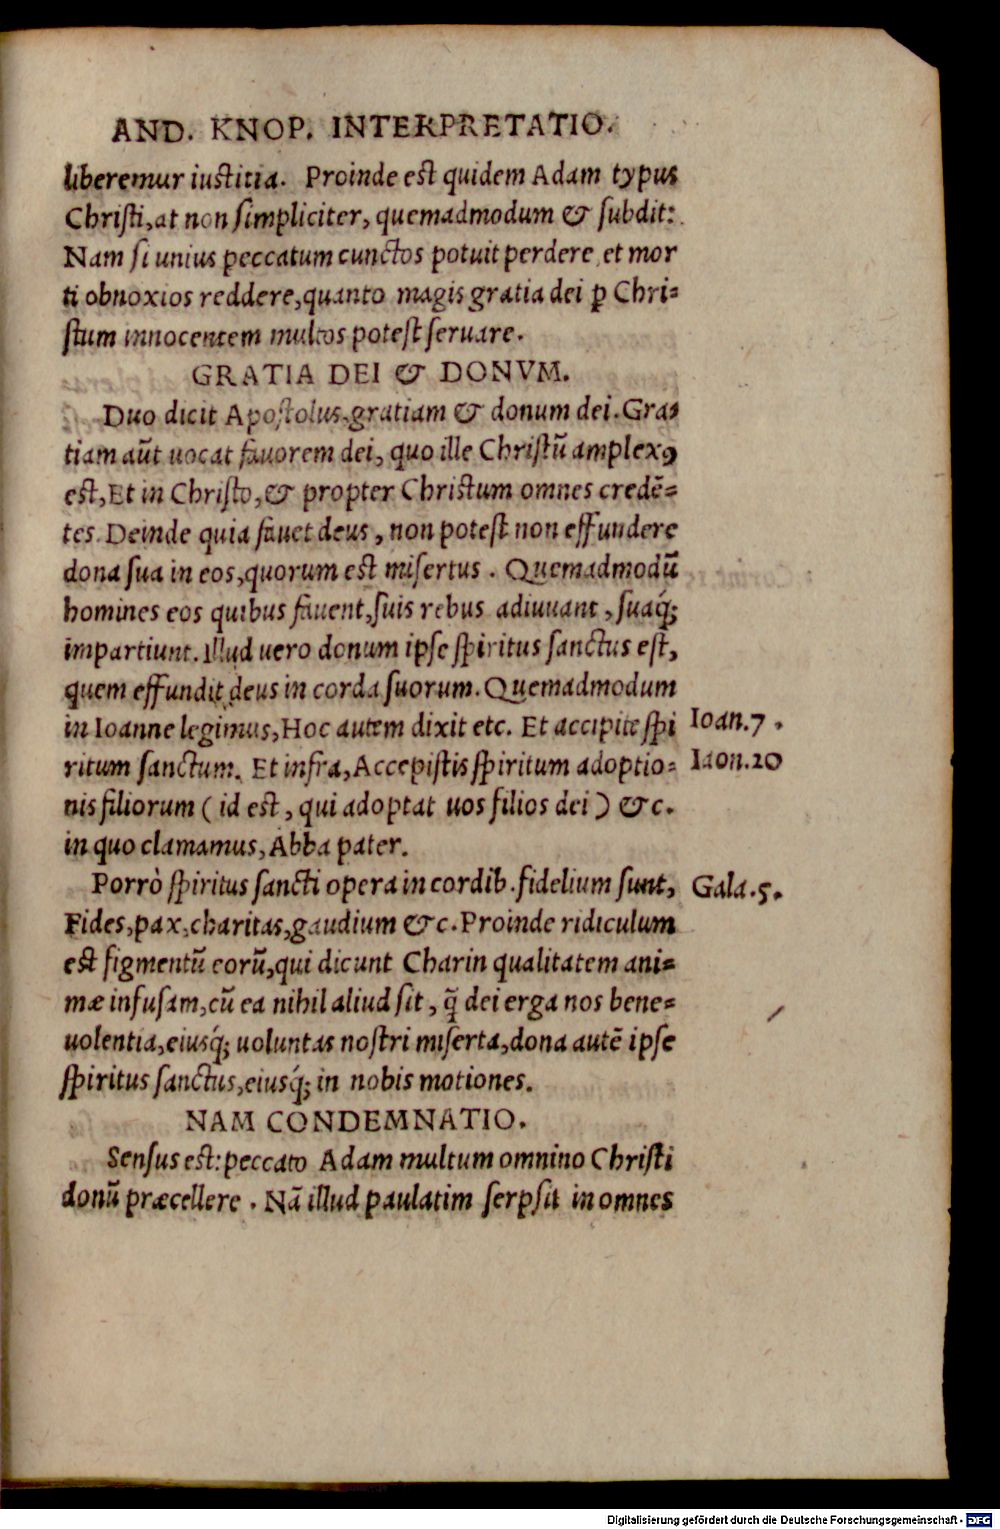 AND. KNOP. INTERPRETATIO.
liberemur iustitia. Proinde est quidem Adam typus
Christi, at non simpliciter, quemadmodum & subdit:
Nam si unius peccatum cunctos potuit perdere, et mor
ti obnoxios reddere, quanto magis gratia dei ꝑ Chri-
stum innocentem multos potest seruare.
GRATIA DEI & DONVM.
Duo dicit Apostolus, gratiam & donum dei. Gra-
tiam aūt uocat fauorem dei, quo ille Christū amplexꝯ
est, Et in Christo, & propter Christum omnes credē-
tes. Deinde quia fauet deus, non potest non effundere
dona sua in eos, quorum est misertus. Quemadmodū
homines eos quibus fauent, suis rebus adiuuant, suaq́;
impartiunt. Illud uero donum ipse spiritus sanctus est,
quem effundit deus in corda suorum. Quemadmodum
in Ioanne legimus, Hoc autem dixit etc. Et accipite spi
Ioan. 7.
ritum sanctum. Et infra, Accepistis spiritum adoptio-
Iaon. 20
nis filiorum (id est, qui adoptat uos filios dei) &c.
in quo clamamus, Abba pater.
Porrò spiritus sancti opera in cordib. fidelium sunt,
Gala. 5.
Fides, pax, charitas, gaudium &c. Proinde ridiculum
est figmentū eorū, qui dicunt Charin qualitatem ani-
mæ infusam, cū ea nihil aliud sit, q̄ dei erga nos bene-
uolentia, eiusq́; uoluntas nostri miserta, dona autē ipse
spiritus sanctus, eiusq́; in nobis motiones.
NAM CONDEMNATIO.
Sensus est: peccato Adam multum omnino Christi
donū præcellere. Nā illud paulatim serpsit in omnes
Digitalisierung gefördert durch die Deutsche Forschungsgemeinschaft - DFG